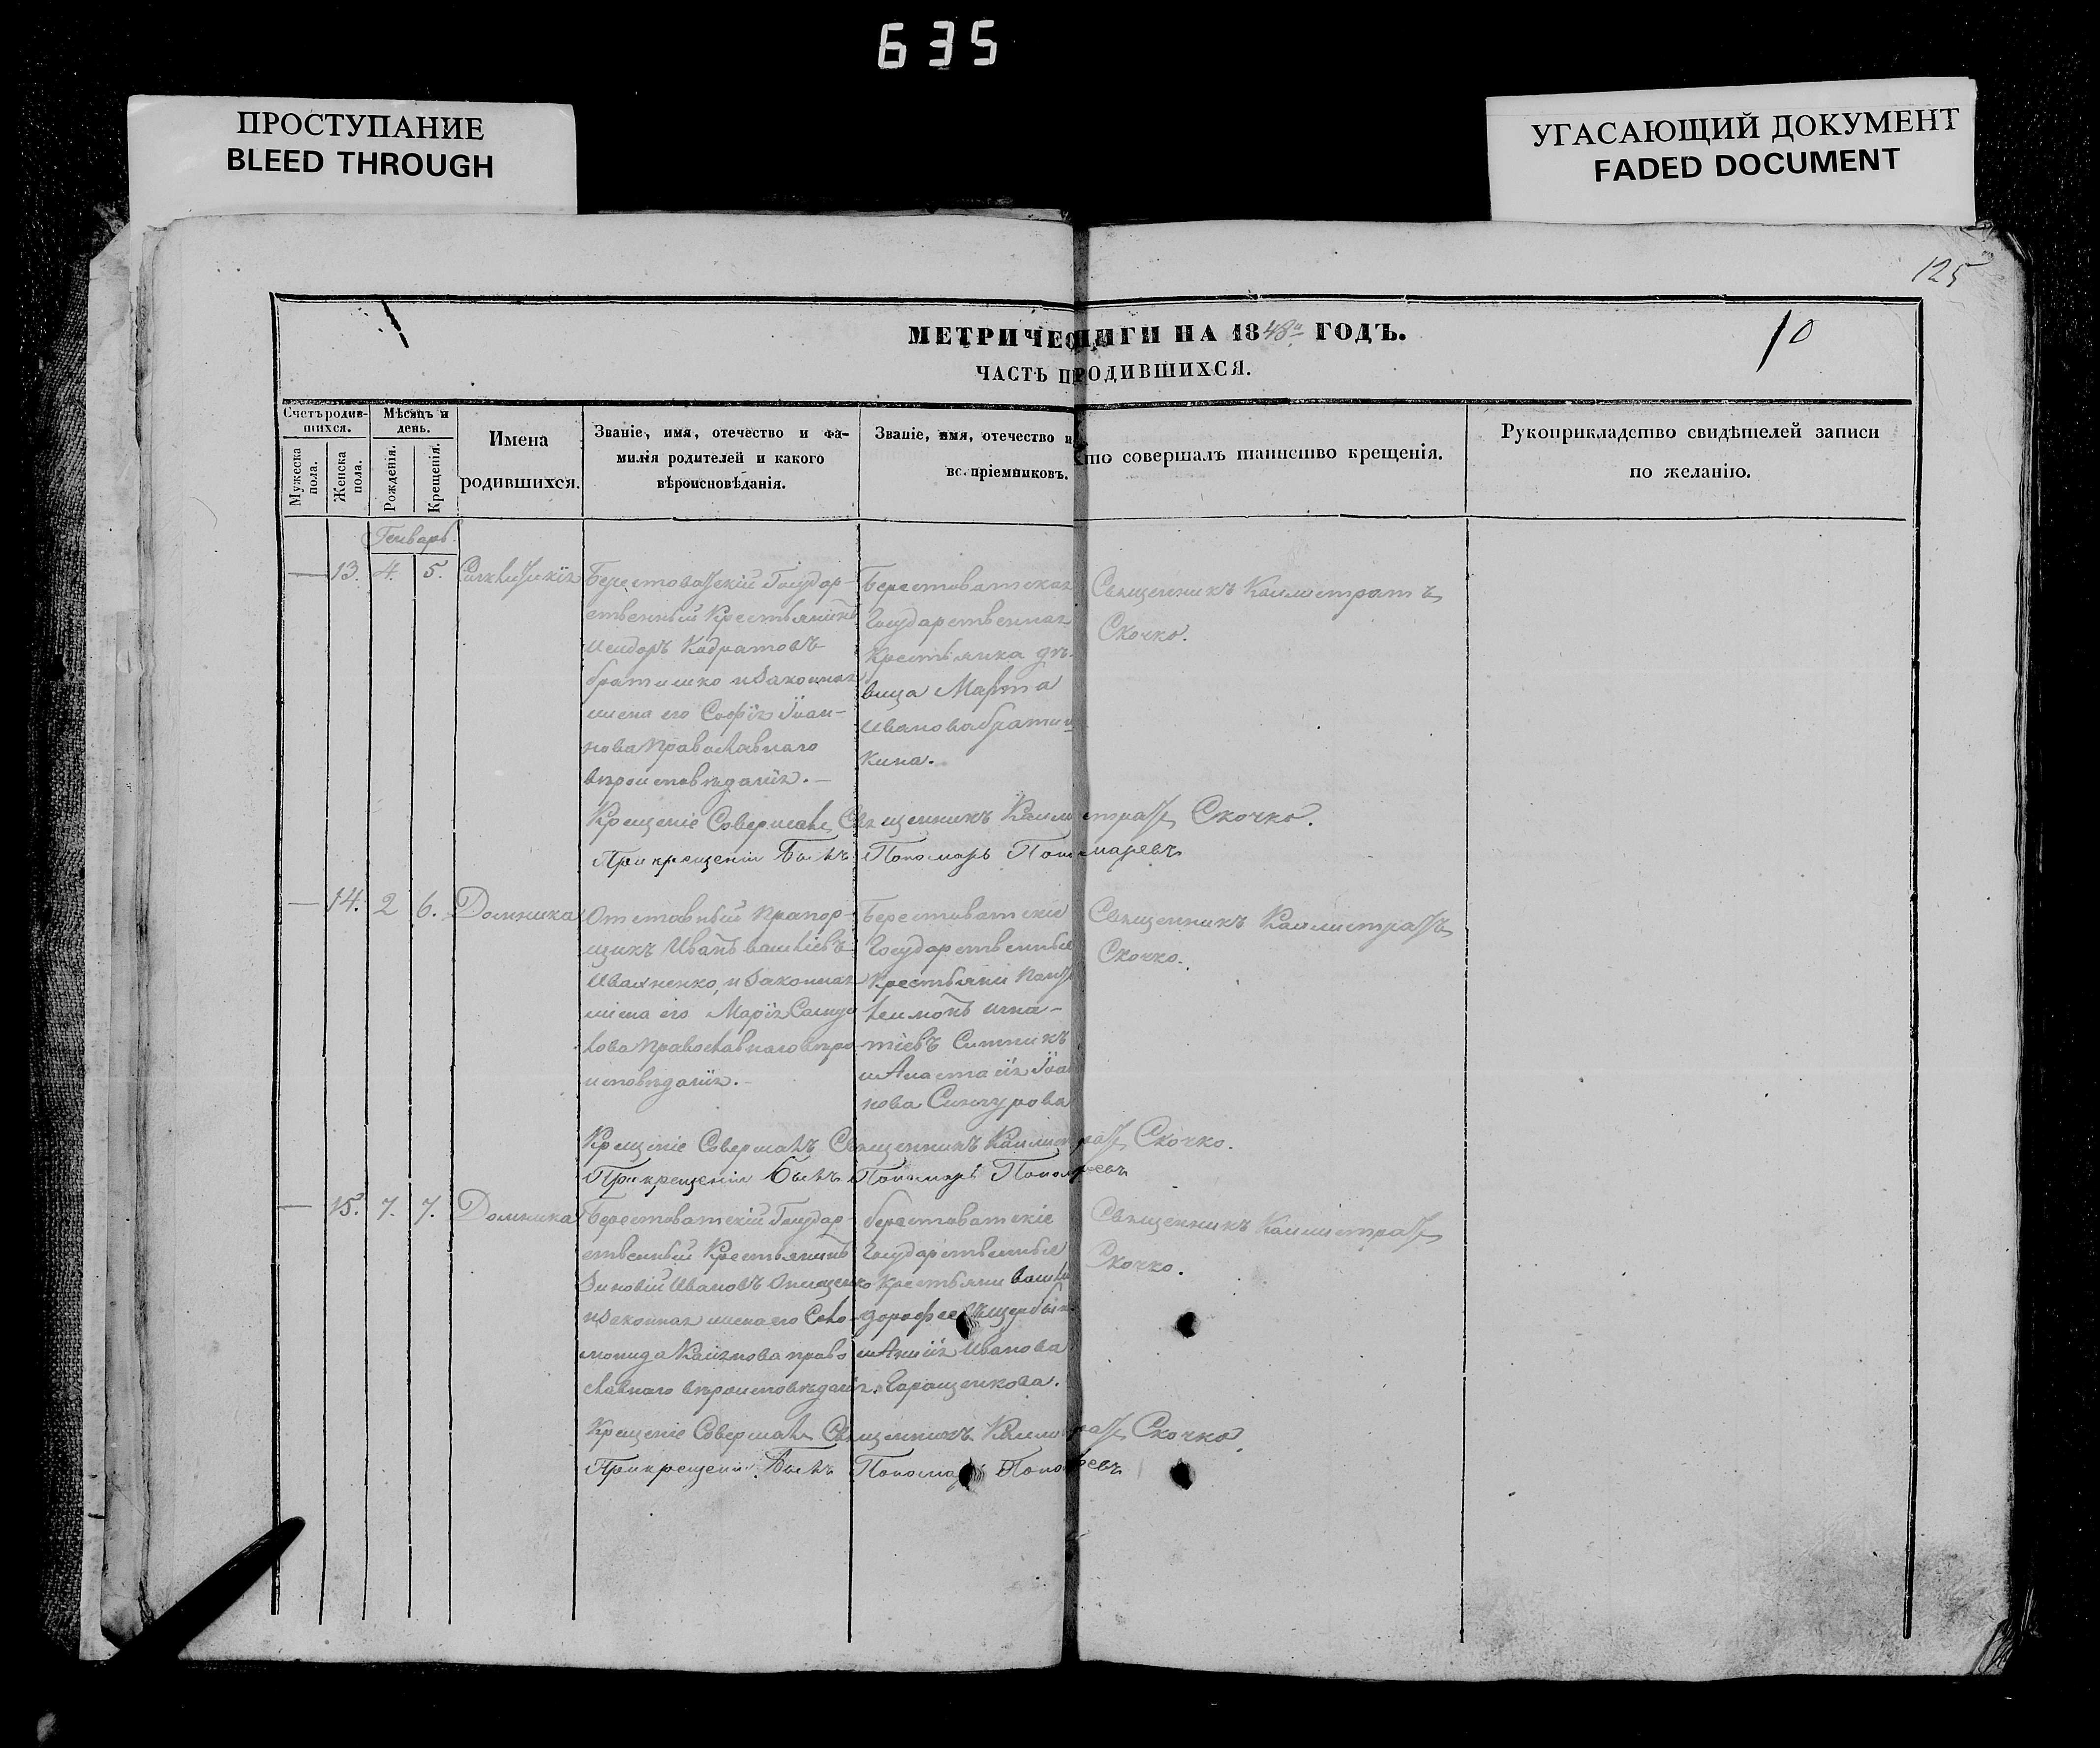 635
ПРОСТУПАНИЕ
BLEED THROUGH
УГАСАЮЩИЙ ДОКУМЕНТ
FADED DOCUMENT
125
МЕТРИЧЕС НИГИ НА 1848й ГОДЪ.
10
ЧАСТЬ П РОДИВШИХСЯ.
Счетъ родив-
шихся.
Мужеска
пола.
Женска
пола.
Мѣсяцъ и
день.
Рожденія.
Крещенія.
Имена
родившихся.
Званіе, имя, отечество и фа-
милія родителей и какого
вѣроисповѣданія.
Званіе, имя, отечество и
вс пріемниковъ.
то совершалъ таинство крещенія.
Рукоприкладство свидѣтелей записи
по желанію.
Генварь.
— 13. 4. 5.
Берестоватскій Государ-
ственный Крестьянинъ
Исидоръ Кодратовъ
братишко и законная
жена его Софія Іоан-
нова Православнаго
вѣроисповѣданія. —
Берестоватская
Государственная
Крестьянка дѣ-
вица Марта
Иванова брати-
кина.
Священникъ Каллистратъ
Скочко.
Крещеніе Совершалъ Священникъ Каллистратъ Скочко.
При крещеніи Былъ Пономарь Пономаревъ
— 14. 2 6. Домника
Отставный Прапор-
щикъ Иванъ василіевъ
Иваненко, и законная
жена его Марія Самуи
лова Православнаго вѣро
исповѣданія. —
Берестоватскіе
Государственные
Крестьяни Пант
леимонъ игна-
тіевъ Ситникъ
и Анастасія Іоан
нова Синчурова
Священникъ Каллистратъ
Скочко.
Крещеніе Совершалъ Священникъ Каллистратъ Скочко.
При крещеніи Былъ Пономарь Пономаревъ
— 15. 7. 7. Домника
Берестоватскій Государ-
ственный Крестьянинъ
Зиновій Ивановъ Онищенко
и законная жена его Соло
монида Каліянова право
славнаго вѣроисповѣданія.
берестоватскіе
Государственные
Крестьяни василій
дорофеевъ
и Анна Иванова
Геращенкова.
Священникъ Каллистратъ
Скочко.
Крещеніе Совершалъ Священникъ Каллистратъ Скочко.
При крещеніи Былъ Пономарь Пономаревъ